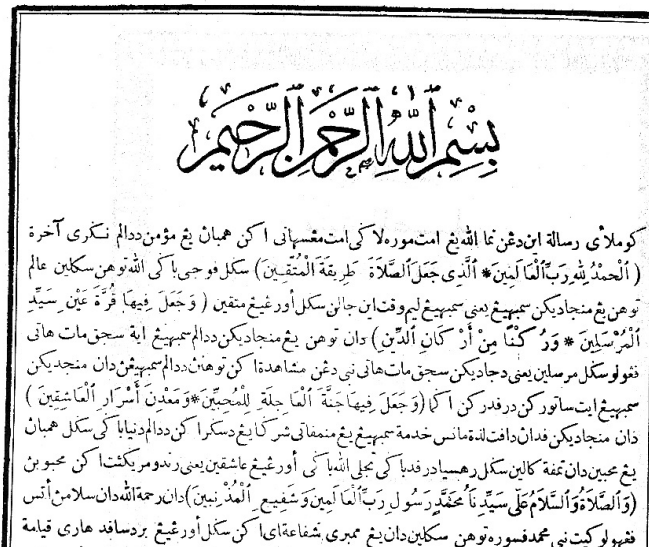 بِسْمِ ٱللَّهِ ٱلرَّحْمَٰنِ ٱلرَّحِيمِ
كوملاءي رسالة اين دغن نما الله يڠ امت موره لاكي امت مڠسهاني اكن همبان يڠ مؤمن ددالم نكري آخرة
( اَلْحَمْدُ لِلّٰهِ رَبِّ الْعَالَمِينَ * اَلَّذِي جَعَلَ الصَّلَاةَ طَرِيقَةَ الْمُتَّقِينَ ) سكل فوجي باكي الله توهن سكلين عالم
توهن يڠ منجاديكن سمبهيڠ يعني سمبهيڠ ليم وقت اين جالن سكل أورڠ يڠ متقين ( وَجَعَلَ فِيهَا قُرَّةَ عَيْنِ سَيِّدِ
الْمُرْسَلِينَ * وَرُكْنًا مِنْ أَرْكَانِ الدِّينِ ) دان توهن يڠ منجاديكن ددالم سمبهيڠ ايت سجق مات هاتي
ڤڠهولو سكل مرسلين يعني دجاديكن سجق مات هاتي نبي دغن مشاهدة اكن توهنن ددالم سمبهيڠن دان منجاديكن
سمبهيڠ ايت ساتو ركن درفد ركن اكام ( وَجَعَلَ فِيهَا جَنَّةَ الْعَاجِلَةِ لِلْمُحِبِّينَ * وَمَعْدِنَ أَسْرَارِ الْعَاشِقِينَ )
دان منجاديكن فدان دافت لذة مانس خدمة سمبهيڠ يڠ منمفاتي شركا يڠ دسكراكن ددالم دنيا باكي سكل همبان
يڠ محبين دان تمفة كالين سكل رهسيا درفد باكي تجلي الله باكي أورڠ يڠ عاشقين يعني رندو مريكئت اكن محبوبن
( وَالصَّلَاةُ وَالسَّلَامُ عَلَى سَيِّدِنَا مُحَمَّدٍ رَسُولِ رَبِّ الْعَالَمِينَ وَشَفِيعِ الْمُذْنِبِينَ ) دان رحمة الله دان سلامن أتس
ڤڠهولو كيت نبي محمد فسوره توهن سكلين دان يڠ ممبري شفاعة اي اكن سكل أورڠ يڠ بردوسا فد هاري قيامة